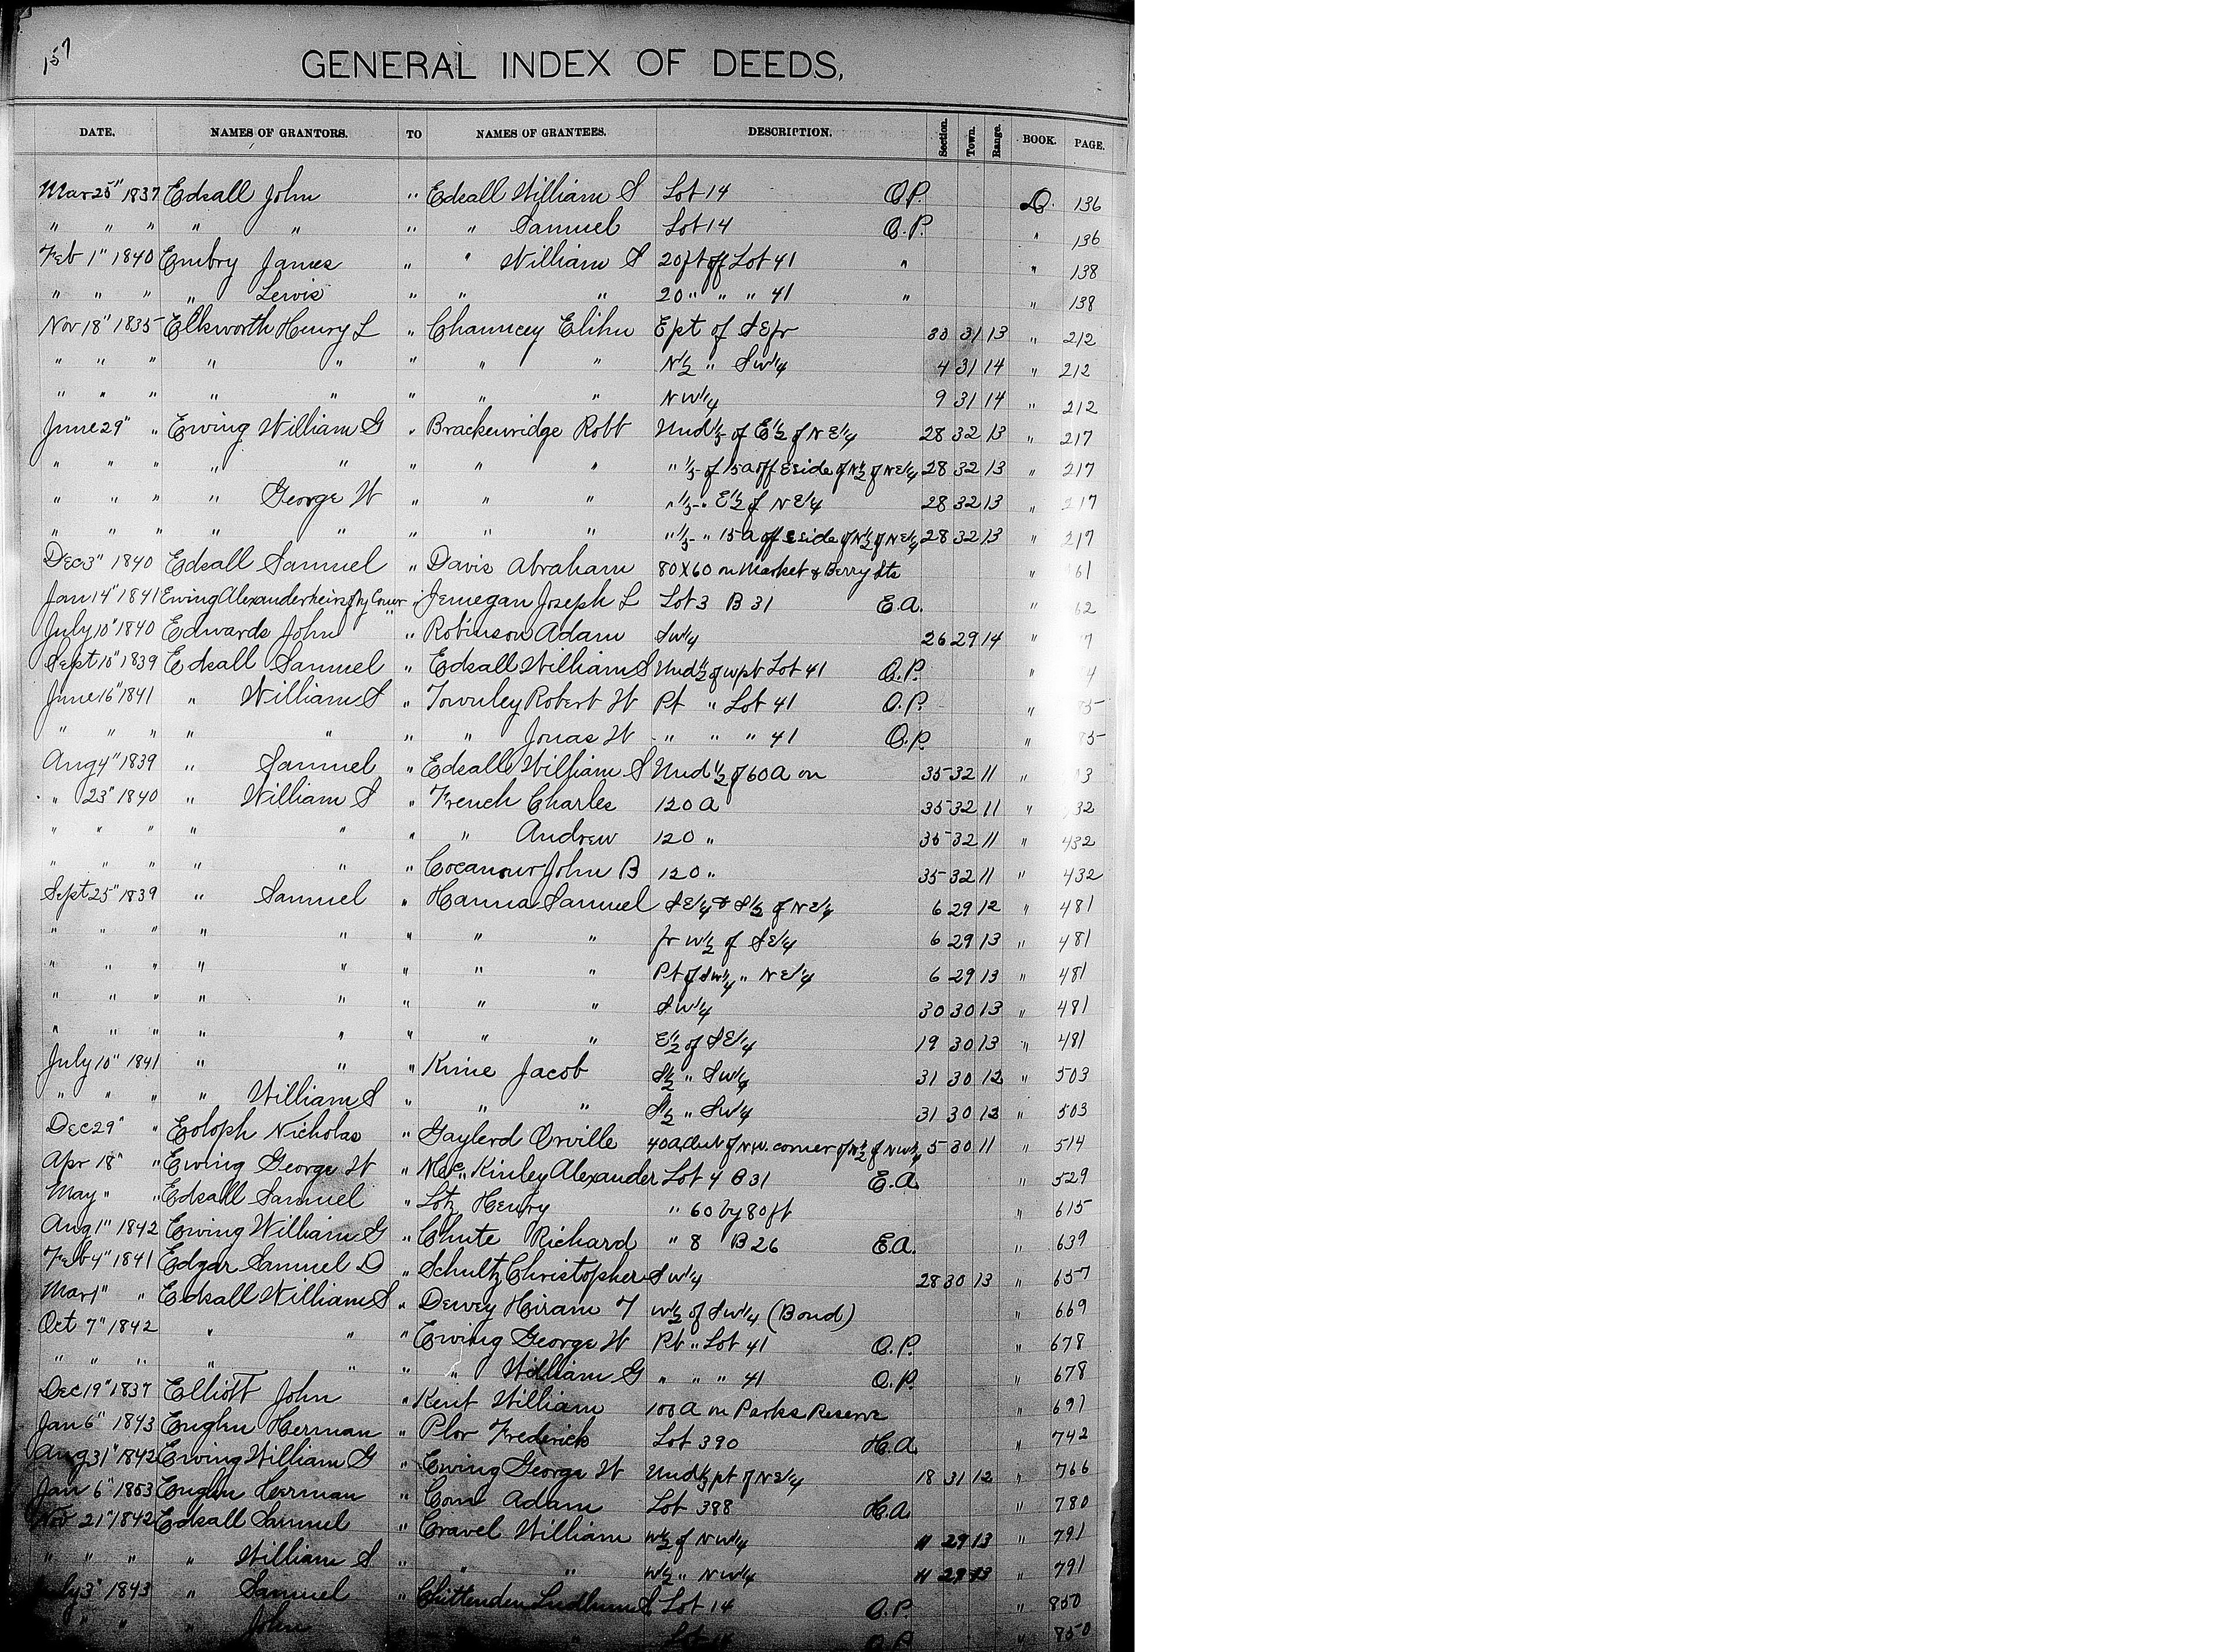 157
GENERAL INDEX OF DEEDS,
DATE. NAMES OF GRANTORS. TO NAMES OF GRANTEES. DESCRIPTION. Section. Town. Range. BOOK. PAGE.
Mar 25" 1837 Edsall John " Edsall William S Lot 14 O.P. D. 136
" " " " " " " Samuel Lot 14 O.P. " 136
Feb 1" 1840 Embry James " " William S 20 ft off Lot 41 " " 138
" " " " Lewis " " " 20 " " " 41 " " 138
Nov 18" 1835 Ellsworth Henry L " Chauncey Elihu E pt of SE fr 30 31 13 " 212
" " " " " " " " N 1/2 " SW 1/4 4 31 14 " 212
" " " " " " " " NW 1/4 9 31 14 " 212
June 29" " Ewing William G " Brackenridge Robt Und 1/5 of E 1/2 of NE 1/4 28 32 13 " 217
" " " " " " " " " 1/5 of 15 a off E side of W 1/2 of NE 1/4 28 32 13 " 217
" " " " George W " " " " 1/5 " E 1/2 of NE 1/4 28 32 13 " 217
" " " " " " " " " 1/5 " 15 a off E side of W 1/2 of NE 1/4 28 32 13 " 217
Dec 3" 1840 Edsall Samuel " Davis Abraham 80 X 60 on Market & Berry Sts " 61
Jan 14" 1841 Ewing Alexander heirs of by Comr " Jernegan Joseph L Lot 3 B 31 E.A. " 62
July 10" 1840 Edwards John " Robinson Adam SW 1/4 26 29 14 " 7
Sept 10" 1839 Edsall Samuel " Edsall William S Und 1/2 of W pt Lot 41 O.P. " 4
June 16" 1841 " William S " Townley Robert W Pt " Lot 41 O.P. " 5
" " " " " " " Jonas W " " " 41 O.P. " 5
Aug 4" 1839 " Samuel " Edsall William S Und 1/2 of 60 A on 35 32 11 " 3
" 23" 1840 " William S " French Charles 120 A 35 32 11 " 32
" " " " " " " Andrew 120 " 35 32 11 " 432
" " " " " " Cocanour John B 120 " 35 32 11 " 432
Sept 25" 1839 " Samuel " Hanna Samuel SE 1/4 & S 1/2 of NE 1/4 6 29 12 " 481
" " " " " " " " fr W 1/2 of SE 1/4 6 29 13 " 481
" " " " " " " " Pt of SW 1/4 " NE 1/4 6 29 13 " 481
" " " " " " " " SW 1/4 30 30 13 " 481
" " " " " " " " E 1/2 of SE 1/4 19 30 13 " 481
July 10" 1841 " " " Kime Jacob S 1/2 " SW 1/4 31 30 12 " 503
" " " " William S " " " S 1/2 " SW 1/4 31 30 12 " 503
Dec 29" " Eoloph Nicholas " Gaylerd Orville 40 A out of N.W. corner of W 1/2 of NW 1/4 5 30 11 " 514
Apr 18" " Ewing George W " Mc Kinley Alexander Lot 4 B 31 E.A. " 529
May " " Edsall Samuel " Lotz Henry " 60 by 80 ft " 615
Aug 1" 1842 Ewing William G " Chute Richard " 8 B 26 E.A. " 639
Feb 4" 1841 Edgar Samuel D " Schultz Christopher SW 1/4 28 30 13 " 657
Mar 1" " Edsall William S " Dewey Hiram T W 1/2 of SW 1/4 (Bond) " 669
Oct 7" 1842 " " " Ewing George W Pt " Lot 41 O.P. " 678
" " " " " " " William G " " " 41 O.P. " 678
Dec 19" 1837 Elliott John " Kent William 108 A on Parks Reserve " 691
Jan 6" 1843 Englm Herman " Plor Frederick Lot 390 H.A. " 742
Aug 31" 1842 Ewing William G " Ewing George W Und 1/3 pt of NE 1/4 18 31 12 " 766
Jan 6" 1853 Englm Herman " Com Adam Lot 388 H.A. " 780
Nov 21" 1842 Edsall Samuel " Cravel William W 1/2 of NW 1/4 11 29 13 " 791
" " " " William S " " " W 1/2 " NW 1/4 11 29 13 " 791
July 3" 1843 " Samuel " Chittenden Ludlum S Lot 14 O.P. " 850
" " " John " Lot 14 O.P. " 850